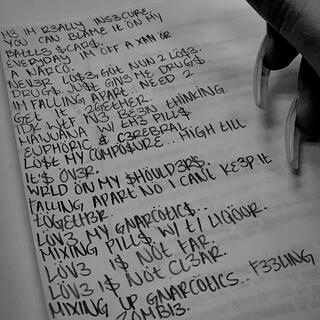 M3 IM R3ALLY INS3CURE.
YOU CAN BLAME IT ON MY
BATTL3 $CAR$.
EVERYDAY IM OFF A XAN OR
A NARCO.
NEV3R LO$3, GOT NUN 2 LÖV3.
DRUG$. JU$T GIV3 ME DRUG$
IM FALLING APART.. NEED 2
GET IT TOGETHER.
IDK WTF IV3 BE3N THINKING.
MARIJUANA W/ TH3 PILL$
EUPHORIC & C3REBRAL.
LO$T MY COMPO$URE... HIGH TILL
IT'$ ÖV3R.
WRLD ÖN MY $HÖULD3R$.
FALLING APART NO I CANT KE3P IT
TÖGETH3R.
LÖV3 MY GNARCÖTIC$...
MIXING PILL$ W/ T/ LIQÖUR.
LÖV3 I$ NÖT FAR.
LÖV3 I$ NÖT CL3AR.
MIXING UP GNARCÖTIC$.. F33LING
ZÖMBI3.